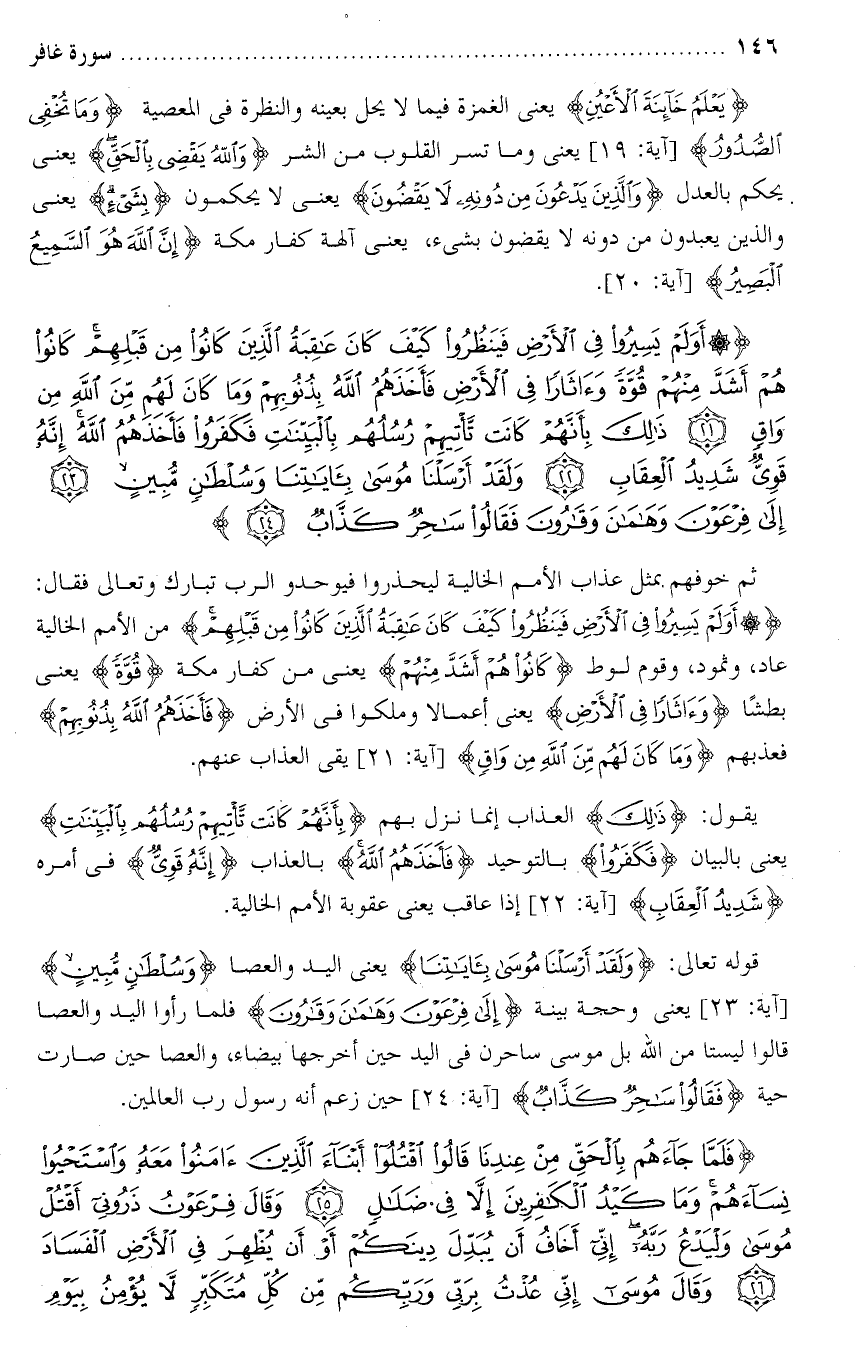 ١٤٦ ........................................................ سورة غافر
﴿يَعْلَمُ خَآئِنَةَ ٱلْأَعْيُنِ﴾ يعنى الغمزة فيما لا يحل بعينه والنظرة فى المعصية ﴿وَمَا تُخْفِى
ٱلصُّدُورُ﴾ [آية: ١٩] يعنى وما تسر القلوب من الشر ﴿وَٱللَّهُ يَقْضِى بِٱلْحَقِّ ۖ﴾ يعنى
يحكم بالعدل ﴿وَٱلَّذِينَ يَدْعُونَ مِن دُونِهِۦ لَا يَقْضُونَ﴾ يعنى لا يحكمون ﴿بِشَىْءٍ ۗ﴾ يعنى
والذين يعبدون من دونه لا يقضون بشىء، يعنى آلهة كفار مكة ﴿إِنَّ ٱللَّهَ هُوَ ٱلسَّمِيعُ
ٱلْبَصِيرُ﴾ [آية: ٢٠].
﴿۞ أَوَلَمْ يَسِيرُوا۟ فِى ٱلْأَرْضِ فَيَنظُرُوا۟ كَيْفَ كَانَ عَٰقِبَةُ ٱلَّذِينَ كَانُوا۟ مِن قَبْلِهِمْ ۚ كَانُوا۟
هُمْ أَشَدَّ مِنْهُمْ قُوَّةً وَءَاثَارًا فِى ٱلْأَرْضِ فَأَخَذَهُمُ ٱللَّهُ بِذُنُوبِهِمْ وَمَا كَانَ لَهُم مِّنَ ٱللَّهِ مِن
وَاقٍ ٢١ ذَٰلِكَ بِأَنَّهُمْ كَانَت تَّأْتِيهِمْ رُسُلُهُم بِٱلْبَيِّنَٰتِ فَكَفَرُوا۟ فَأَخَذَهُمُ ٱللَّهُ ۚ إِنَّهُۥ
قَوِىٌّ شَدِيدُ ٱلْعِقَابِ ٢٢ وَلَقَدْ أَرْسَلْنَا مُوسَىٰ بِـَٔايَٰتِنَا وَسُلْطَٰنٍ مُّبِينٍ ۙ ٢٣
إِلَىٰ فِرْعَوْنَ وَهَٰمَٰنَ وَقَٰرُونَ فَقَالُوا۟ سَٰحِرٌ كَذَّابٌ ٢٤ ﴾
ثم خوفهم بمثل عذاب الأمم الخالية ليحذروا فيوحدو الرب تبارك وتعالى فقال:
﴿۞ أَوَلَمْ يَسِيرُوا۟ فِى ٱلْأَرْضِ فَيَنظُرُوا۟ كَيْفَ كَانَ عَٰقِبَةُ ٱلَّذِينَ كَانُوا۟ مِن قَبْلِهِمْ ۚ﴾ من الأمم الخالية
عاد، وثمود، وقوم لوط ﴿كَانُوا۟ هُمْ أَشَدَّ مِنْهُمْ﴾ يعنى من كفار مكة ﴿قُوَّةً﴾ يعنى
بطشًا ﴿وَءَاثَارًا فِى ٱلْأَرْضِ﴾ يعنى أعمالا وملكوا فى الأرض ﴿فَأَخَذَهُمُ ٱللَّهُ بِذُنُوبِهِمْ﴾
فعذبهم ﴿وَمَا كَانَ لَهُم مِّنَ ٱللَّهِ مِن وَاقٍ﴾ [آية: ٢١] يقى العذاب عنهم.
يقول: ﴿ذَٰلِكَ﴾ العذاب إنما نزل بهم ﴿بِأَنَّهُمْ كَانَت تَّأْتِيهِمْ رُسُلُهُم بِٱلْبَيِّنَٰتِ﴾
يعنى بالبيان ﴿فَكَفَرُوا۟﴾ بالتوحيد ﴿فَأَخَذَهُمُ ٱللَّهُ ۚ﴾ بالعذاب ﴿إِنَّهُۥ قَوِىٌّ﴾ فى أمره
﴿شَدِيدُ ٱلْعِقَابِ﴾ [آية: ٢٢] إذا عاقب يعنى عقوبة الأمم الخالية.
قوله تعالى: ﴿وَلَقَدْ أَرْسَلْنَا مُوسَىٰ بِـَٔايَٰتِنَا﴾ يعنى اليد والعصا ﴿وَسُلْطَٰنٍ مُّبِينٍ ۙ﴾
[آية: ٢٣] يعنى وحجة بينة ﴿إِلَىٰ فِرْعَوْنَ وَهَٰمَٰنَ وَقَٰرُونَ﴾ فلما رأوا اليد والعصا
قالوا ليستا من الله بل موسى ساحرن فى اليد حين أخرجها بيضاء، والعصا حين صارت
حية ﴿فَقَالُوا۟ سَٰحِرٌ كَذَّابٌ﴾ [آية: ٢٤] حين زعم أنه رسول رب العالمين.
﴿فَلَمَّا جَآءَهُم بِٱلْحَقِّ مِنْ عِندِنَا قَالُوا۟ ٱقْتُلُوٓا۟ أَبْنَآءَ ٱلَّذِينَ ءَامَنُوا۟ مَعَهُۥ وَٱسْتَحْيُوا۟
نِسَآءَهُمْ ۚ وَمَا كَيْدُ ٱلْكَٰفِرِينَ إِلَّا فِى ضَلَٰلٍ ٢٥ وَقَالَ فِرْعَوْنُ ذَرُونِىٓ أَقْتُلْ
مُوسَىٰ وَلْيَدْعُ رَبَّهُۥٓ ۖ إِنِّىٓ أَخَافُ أَن يُبَدِّلَ دِينَكُمْ أَوْ أَن يُظْهِرَ فِى ٱلْأَرْضِ ٱلْفَسَادَ
٢٦ وَقَالَ مُوسَىٰٓ إِنِّى عُذْتُ بِرَبِّى وَرَبِّكُم مِّن كُلِّ مُتَكَبِّرٍ لَّا يُؤْمِنُ بِيَوْمِ